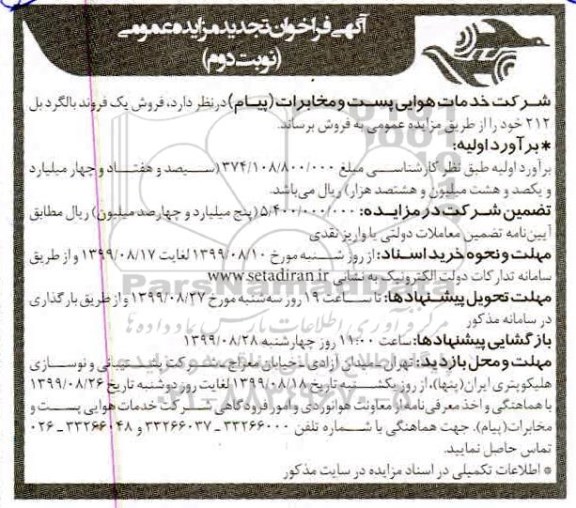 آگهی فراخوان تجدید مزایده عمومی
(نوبت دوم)
شرکت خدمات هوایی پست و مخابرات (پیام) درنظر دارد، فروش یک فروند بالگرد بل
۲۱۲ خود را از طریق مزایده عمومی به فروش برساند.
*برآورد اولیه:
برآورد اولیه طبق نظر کارشناسی مبلغ ۳۷۴/۱۰۸/۸۰۰/۰۰۰ (سیصد و هفتاد و چهار میلیارد
و یکصد و هشت میلیون و هشتصد هزار) ریال می‌باشد.
تضمین شرکت در مزایده: ۵/۴۰۰/۰۰۰/۰۰۰ (پنج میلیارد و چهارصد میلیون) ریال مطابق
آیین‌نامه تضمین معاملات دولتی یا واریز نقدی
مهلت و نحوه خرید اسناد: از روز شنبه مورخ ۱۳۹۹/۰۸/۱۰ لغایت ۱۳۹۹/۰۸/۱۷ و از طریق
سامانه تدارکات دولت الکترونیک به نشانی www.setadiran.ir
مهلت تحویل پیشنهادها: تا ساعت ۱۹ روز سه‌شنبه مورخ ۱۳۹۹/۰۸/۲۷ و از طریق بارگذاری
در سامانه مذکور
بازگشایی پیشنهادها: ساعت ۱۱:۰۰ روز چهارشنبه ۱۳۹۹/۰۸/۲۸
مهلت و محل بازدید: تهران ـ میدان آزادی ـ خیابان معراج ـ شرکت پشتیبانی و نوسازی
هلیکوپتری ایران (پنها)، از روز یکشنبه تاریخ ۱۳۹۹/۰۸/۱۸ لغایت روز دوشنبه تاریخ ۱۳۹۹/۰۸/۲۶
با هماهنگی و اخذ معرفی نامه از معاونت هوانوردی و امور فرودگاهی شرکت خدمات هوایی پست و
مخابرات (پیام). جهت هماهنگی با شماره تلفن ۳۳۲۶۶۰۰۰ ـ ۳۳۲۶۶۰۳۷ و ۳۳۲۶۶۰۴۸ ـ ۰۲۶
تماس حاصل نمایید.
* اطلاعات تکمیلی در اسناد مزایده در سایت مذکور
ParsNamadData
مرکز فرآوری اطلاعات پارس نماد داده ها
۰۲۱-۸۸۳۴۹۶۷۰-۵